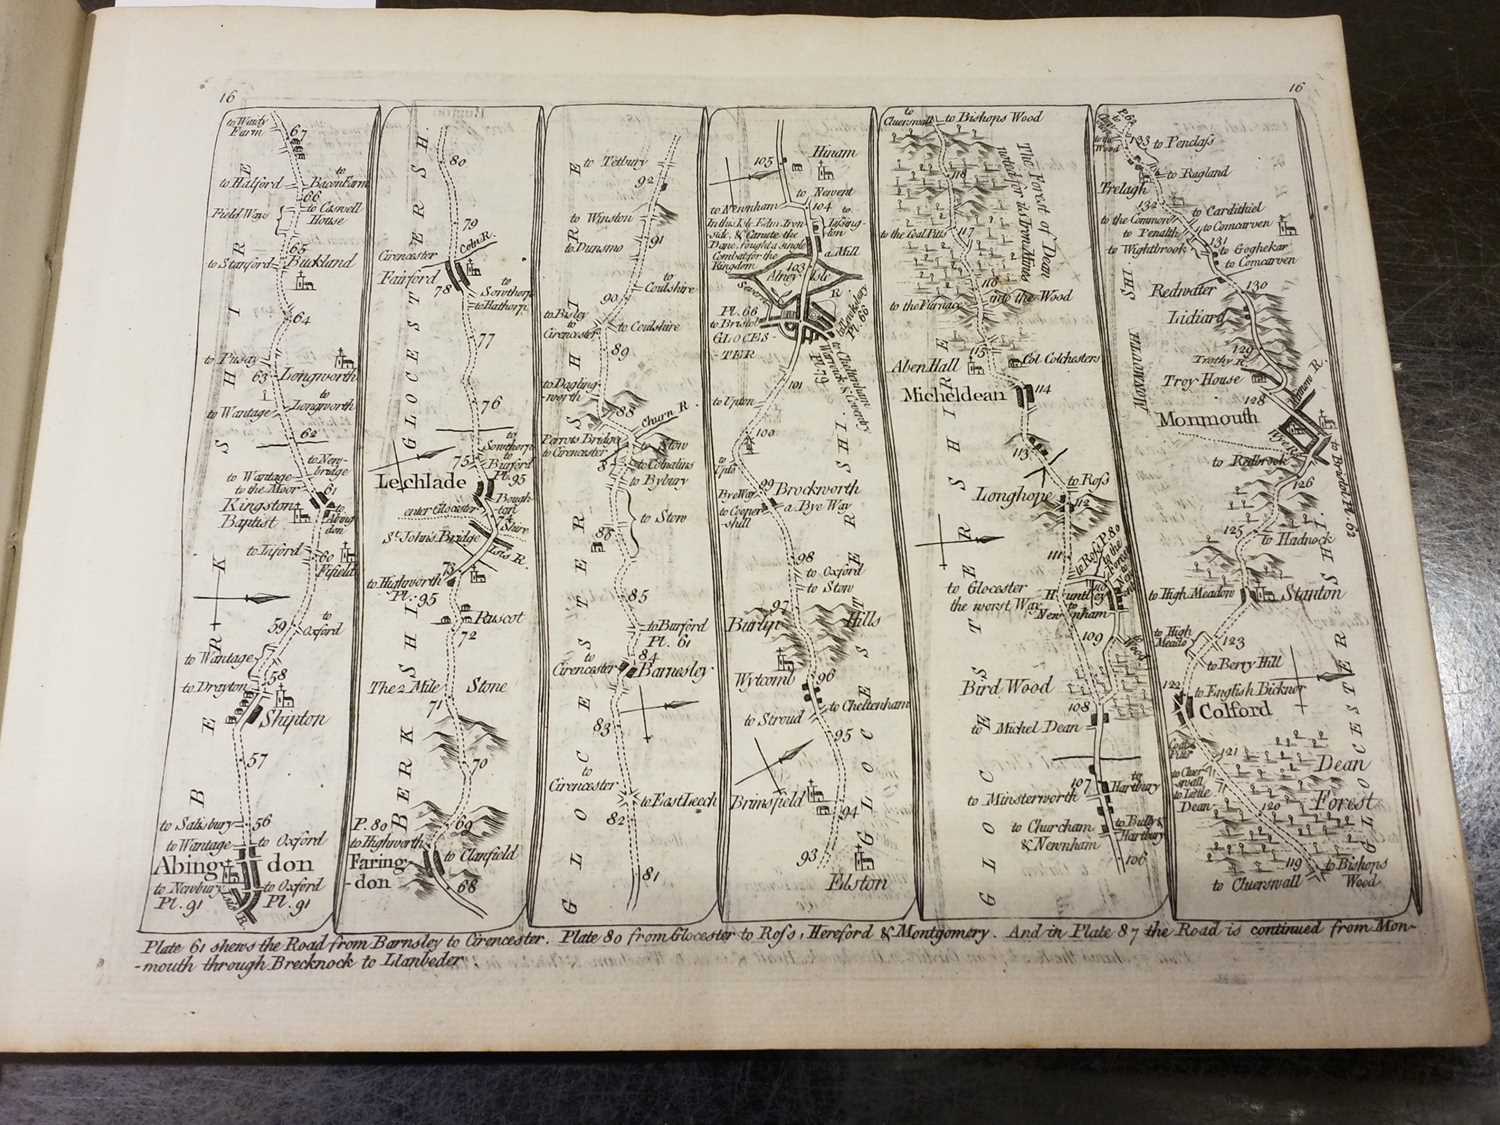 16
16
to Wadty
Farm
67
to Hatford
to
Bacon Farm
66
to Caswell
House
Field Way
65
to Stanford
Buckland
64
to Pusay
Longworth
63
to Longworth
to Wantage
62
to New-
bridge
to Wantage
to the Moor
61
Kingston
Baptist
to
Abing
don
to Isford
60
Fifield
59
to
Oxford
to Wantage
58
to Drayton
Shipton
57
to Salisbury
56
to Wantage
to Oxford
Abing don
to Newbury
Pl. 91
to Oxford
Pl. 91
Isis R.
BERKSHIRE
80
79
Coln R.
Cirencester
Fairford
78
to
Sowthorp
to Hathorp
77
76
to
Sowthorp
75
to
Burford
Pl. 95
Lechlade
Bough-
ton
enter Glocester
Shire
St. John's Bridge
Isis R.
73
to Highworth
Pl. 95
Ruscot
72
The 2 Mile Stone
71
70
P. 80
to Highworth
69
Faring-
-don
to Clanfield
68
BERKSHI
GLOCESTERSH.
to Tetbury
92
to Winston
91
to Dunsmo
to
Coulshire
90
to Bisley
to
Cirencester
to Coulshire
89
to Dagling-
worth
88
Churn R.
Perrots Bridge
to Cirencester
to Stow
87
to Colnalins
to Bybury
to Stow
86
85
to Burford
Pl. 61
84
to
Cirencester
Barnesley
83
to
Cirencester
to East Leech
82
81
GLOCESTERSHIRE
105
Hinam
to Newent
to Newnham
104
to
Lassing-
ton
In this Isle Edm. Iron
side, & Canute the
Dane, fought a single
Combat for the
Kingdom
a Mill
103
Alney Isle
Severn
R
Pl. 66
to Bristol
GLOCES-
-TER
to Tewksbury
Pl. 66
to Cheltenham
Warwick & Coventry
Pl. 79
101
to Upton
100
to
Upto
99
Brockworth
Bye Way
a Bye Way
to Cooper-
shill
98
to Oxford
to Stow
97
Burlip Hills
Wytcomb
96
to Cheltenham
to Stroud
95
Brimsfield
94
93
Elston
GLOCESTERSHIRE
to
Cluerswall
to Bishops Wood
The Forest of Dean
noted for its Iron Mines
118
to the Coal Pitts
117
116
to the Furnace
into the Wood
115
Aben Hall
Col. Colchesters
Micheldean
114
113
to Ross
Longhope
112
111
to Ross P. 80
to Glocester
the worst Way
Huntley
to
Newnham
109
Wood
Bird Wood
108
to Michel Dean
107
to
Hartbury
to Minsterworth
to Churcham
& Newnham
to Bully &
Hartbury
106
GLOCESTERSHIRE
133
to Penclass
to Ragland
Trelagh
132
to Cardithiel
to the Common
to Penalth
to Comcarven
131
to Wightbrook
to Goghekar
to Comcarven
Redwater
130
Lidiard
129
Trothy R.
Troy House
128
Munnow R.
Monmouth
Wye R.
to Redbrook
to Bristol Pl. 62
126
125
to Hadnock
to High Meadow
Stanton
to High
Meado
123
to Berry Hill
122
to English Bicknor
Colford
Coal
Pitts
121
to Cluer-
swall
to Little
Dean
Dean
120
Forest
119
to Cluerswall
to Bishops
Wood
MONMOUTH SH
GLOCESTER SHI.
Plate 61 shews the Road from Barnsley to Cirencester. Plate 80 from Glocester to Ross, Hereford & Montgomery. And in Plate 87 the Road is continued from Mon-
-mouth through Brecknock to Llanbeder.